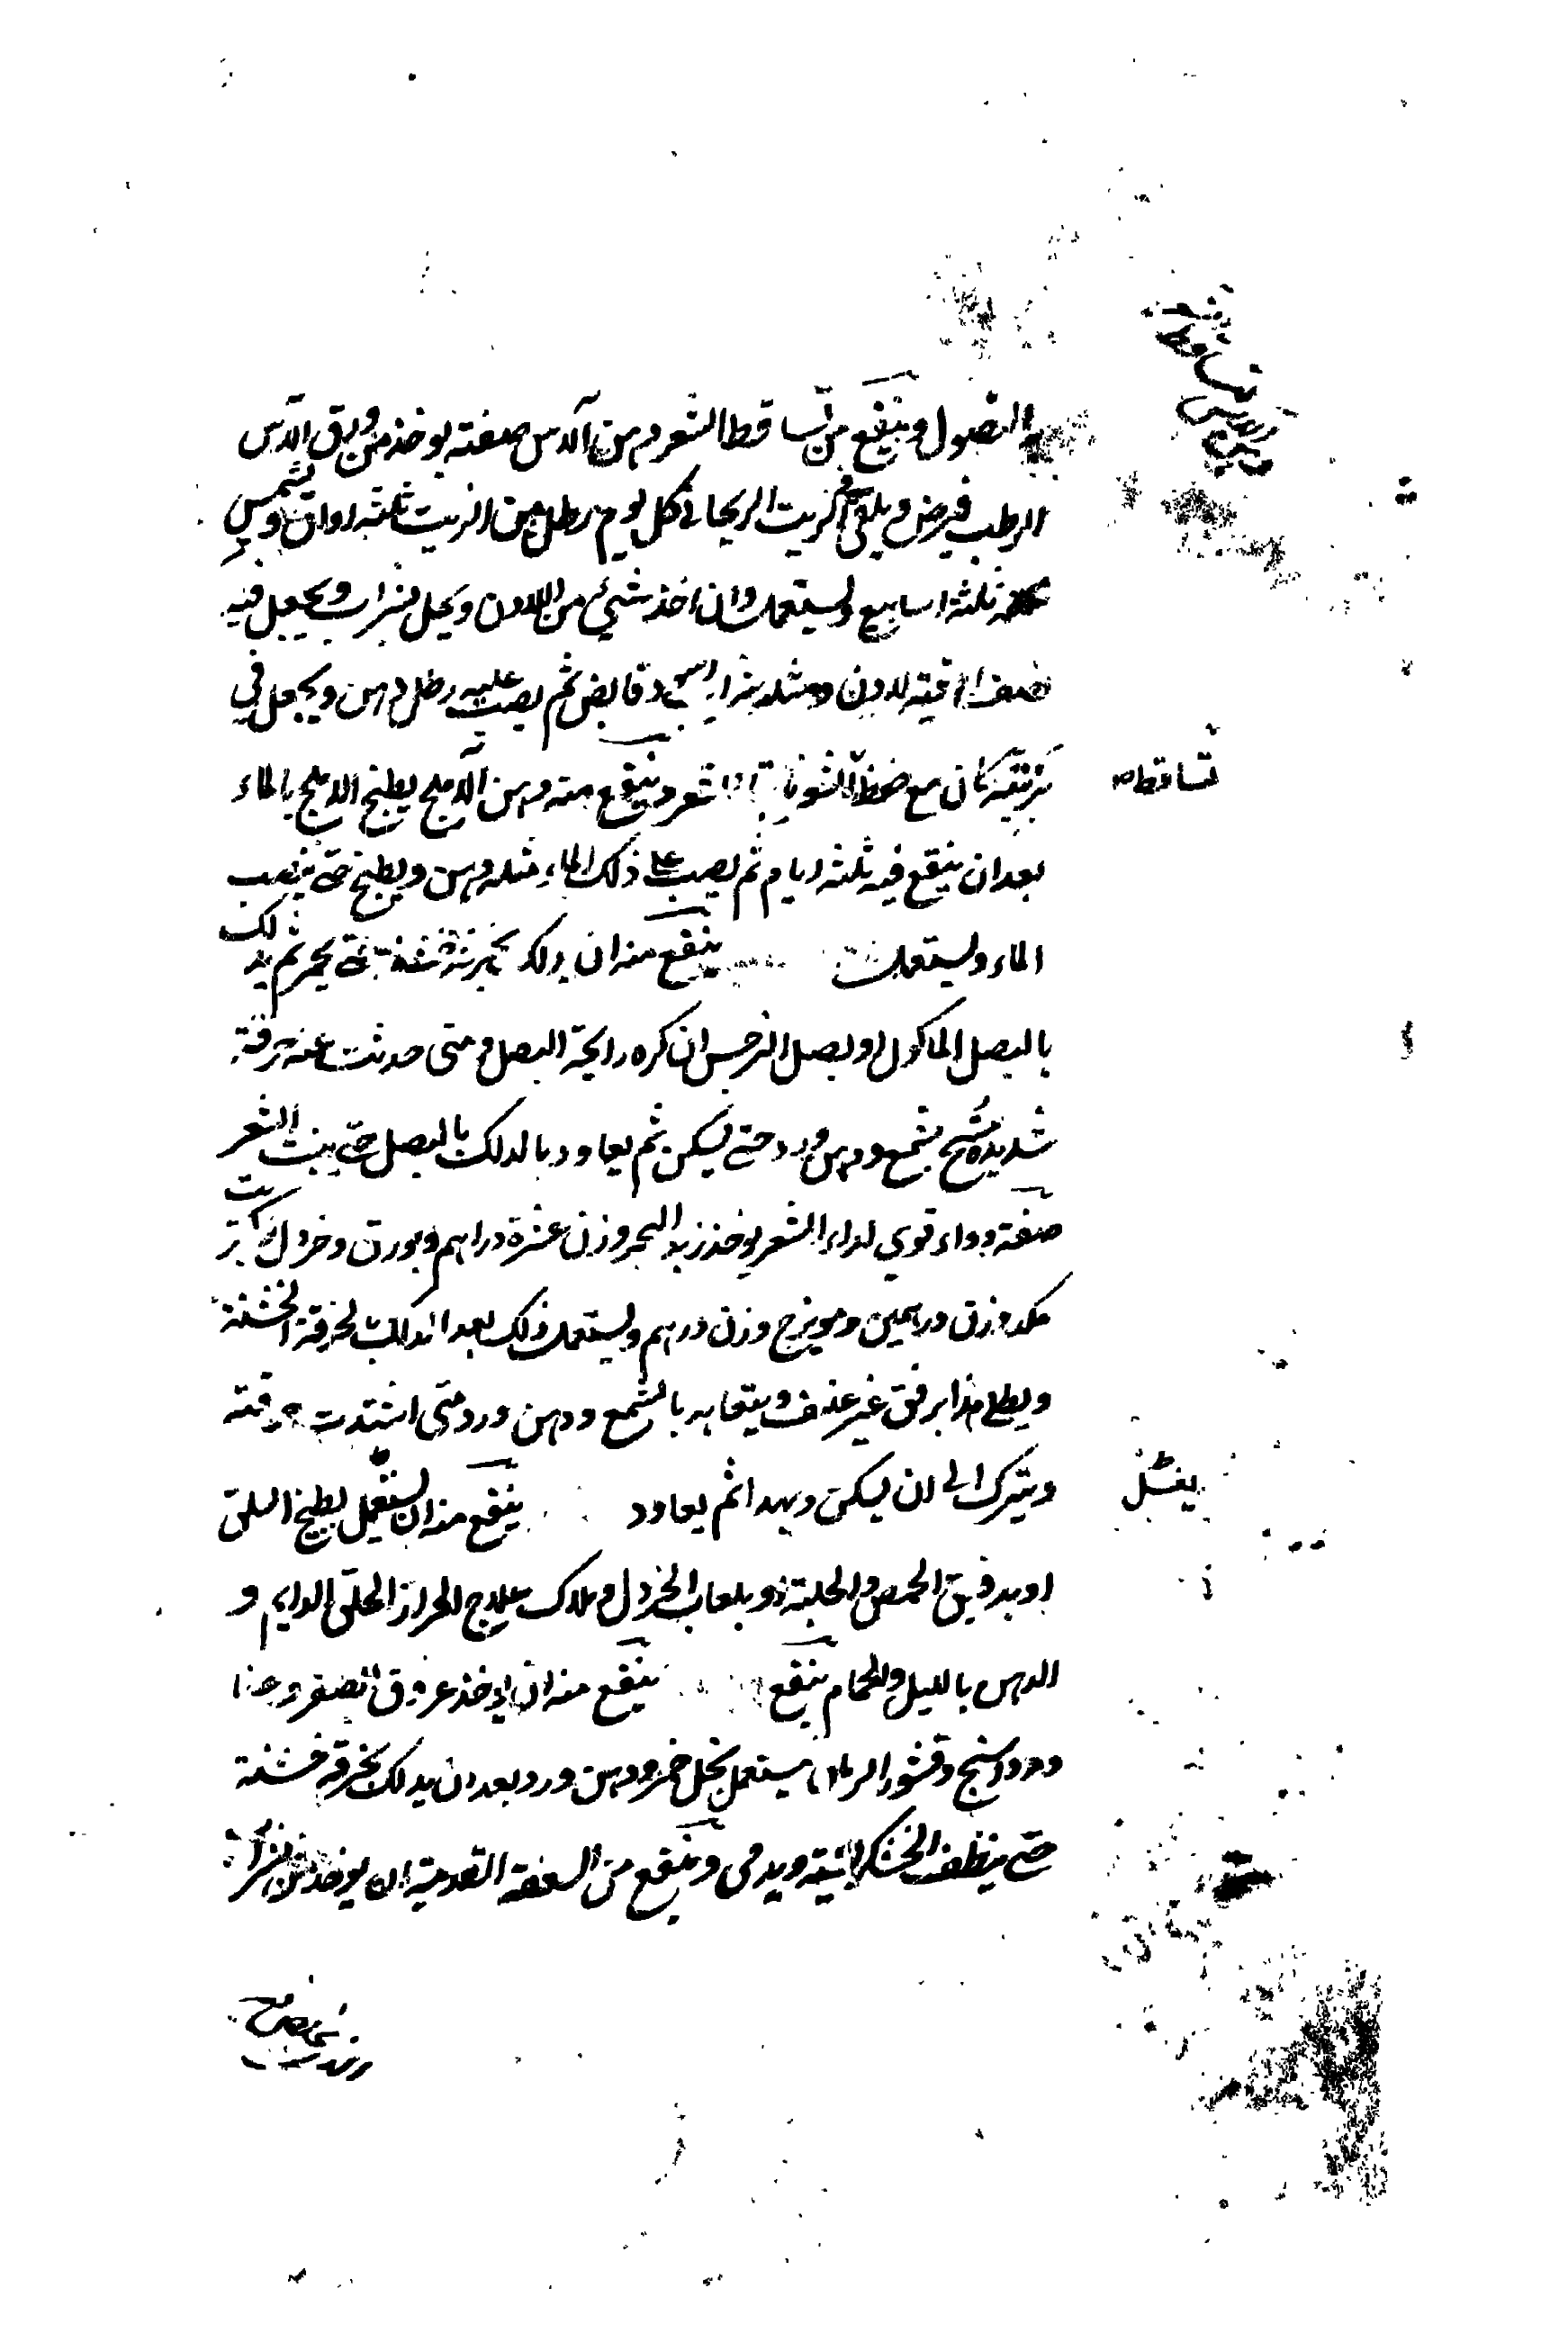 النصول وينفع من تساقط الشعر دهن الآس صفته يوخذ من ورق الآس
الرطب فيرض ويلقى في الزيت الريحاني كل يوم رطل من الزيت ثلثة اواق ويشمس
ثلثة اسابيع ويستعمل وان اخذ شيئ من اللادن ويحل بشراب ويجعل فيه
نصف اوقية لادن ومثله شراب اسود قابض ثم يصب عليه رطل دهن ويجعل في
كان مع الشعر وينفع منه دهن الآملج يطبخ الاملج بالماء
تساقط
بعد ان ينقع فيه ثلثة ايام ثم يصب على ذلك الماء مثله دهن ويطبخ حتى ينضب
الماء ويستعمل ينفع منه ان يدلك بخرقة خشنة حتى يحمر ثم يدلك
بالبصل الماكول او بصل النرجس ان كره رايحة البصل ومتى حدثت عنه حرقة
شديدة مسح بشمع ودهن ورد حتى يسكن ثم يعاود بالدلك بالبصل حتى ينبت الشعر
صفة دواء قوي لداء الشعر يوخذ زبد البحر وزن عشرة دراهم وبورق وخردل وكبريت
مكد وزن درهمين ومويزج وزن درهم ويستعمل ذلك بعد الدلك بالخرقة الخشنة
ويطلى هذا برفق غير عنف ويتعاهد بالشمع ودهن ورد متى اشتدت حرقته
ويترك الى ان يسكن ويهدا ثم يعاود ينفع منه ان يستعمل بطبيخ السلق
يغسل
او بدقيق الحمص والحلبة او بلعاب الخردل وملاك علاج الحزاز الحلق الدايم و
الدهن بالليل والحمام ينفع ينفع منه ان يوخذ عروق الصفر وحنا
ومردارسنج وقشور الرمان يستعمل بخل خمر ودهن ورد بعد ان يدلك بخرقة خشنة
حتى ينظف الخشكريشة ويدمى وينفع من السعفة القديمة ان يوخذ من